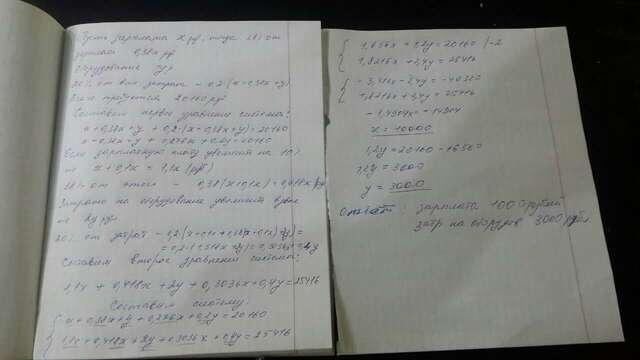 Пусть зарплата x руб, тогда 38% от
зарплаты 0,38x руб
Оборудование y
20% от всех затрат - 0,2(x+0,38x+y)
Всего требуется 20160 руб
Составим первое уравнение системы:
x+0,38x+y+0,2(x+0,38x+y)=20160
x+0,38x+y+0,276x+0,2y=20160
Если заработную плату увеличить на 10%
то x+0,1x=1,1x (руб)
38% от этого - 0,38(x+0,1x)=0,418x руб
Затраты на оборудование увеличить вдвое
то 2y руб.
20% от затрат -
Составим второе уравнение системы:
1,1x + 0,418x + 2y + 0,3036x + 0,4y = 25416
Составим систему:
x+0,38x+y+0,276x+0,2y=20160
1,1x+0,418x+2y+0,3036x+0,4y=25416
1,656x+1,2y=20160 |-2
1,8216x+2,4y=25416
-3,312x-2,4y=-40320
1,8216x+2,4y=25416
-1,4904x=-14904
x=10000
1,2y=20160-16560
1,2y=3600
y=3000
Ответ: зарплата 10000 рублей
затр на оборудов 3000 рубл